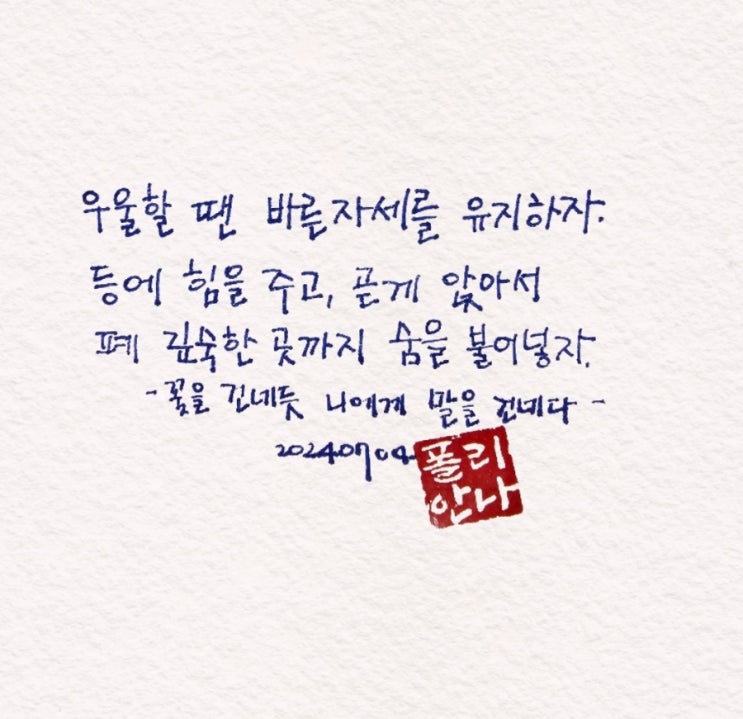 우울할 땐 바른자세를 유지하자.
등에 힘을 주고, 곧게 앉아서
폐 깊숙한 곳까지 숨을 불어넣자.
-꽃을 건네듯 나에게 말을 건네다-
20240704
폴리
안나